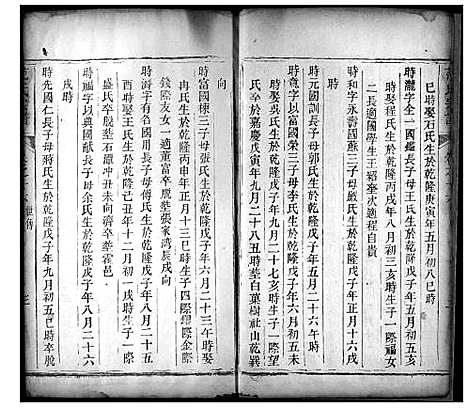 巳時娶石氏生於乾隆庚寅年五月初八巳時
時瀧字全一國鑑長子母王氏生於乾隆戊子年五月初五亥
時娶程氏生於乾隆丙戌年八月初三亥時生子一際福女
二長適國學生王紹奎次適程自貴
時和字永壽國蘇三子母嚴氏生於乾隆戊子年正月十六戌
時
時元國訓長子母郭氏生於乾隆戊子年五月二十六午時
時富國榮三子母李氏生於乾隆戊子年六月初五未
時娶吳氏生於乾隆戊子年九月二十七亥時生子一際望
氏卒嘉慶戊寅年九月二十八丑時葬白菓樹社山乾巽
向
時富國棟三子母張氏生於乾隆戊子年六月二十三午時娶
冉氏生於乾隆丙申年正月十一戌時生子四際耀際金際
錢際友女一適董富卒葬張家湾艮戌向
時濟字有名國用長子母傅氏生於乾隆戊子年八月二十五
酉時娶王氏生於乾隆己丑年十二月初一戌時生子一際
盛氏卒葬石灘冲未向濟卒葬霍邑
時先國仁長子母余氏生於乾隆戊子年八月二十六
戌時
時國 長子母蔣氏生於乾隆戊子年九月初五巳時卒葬